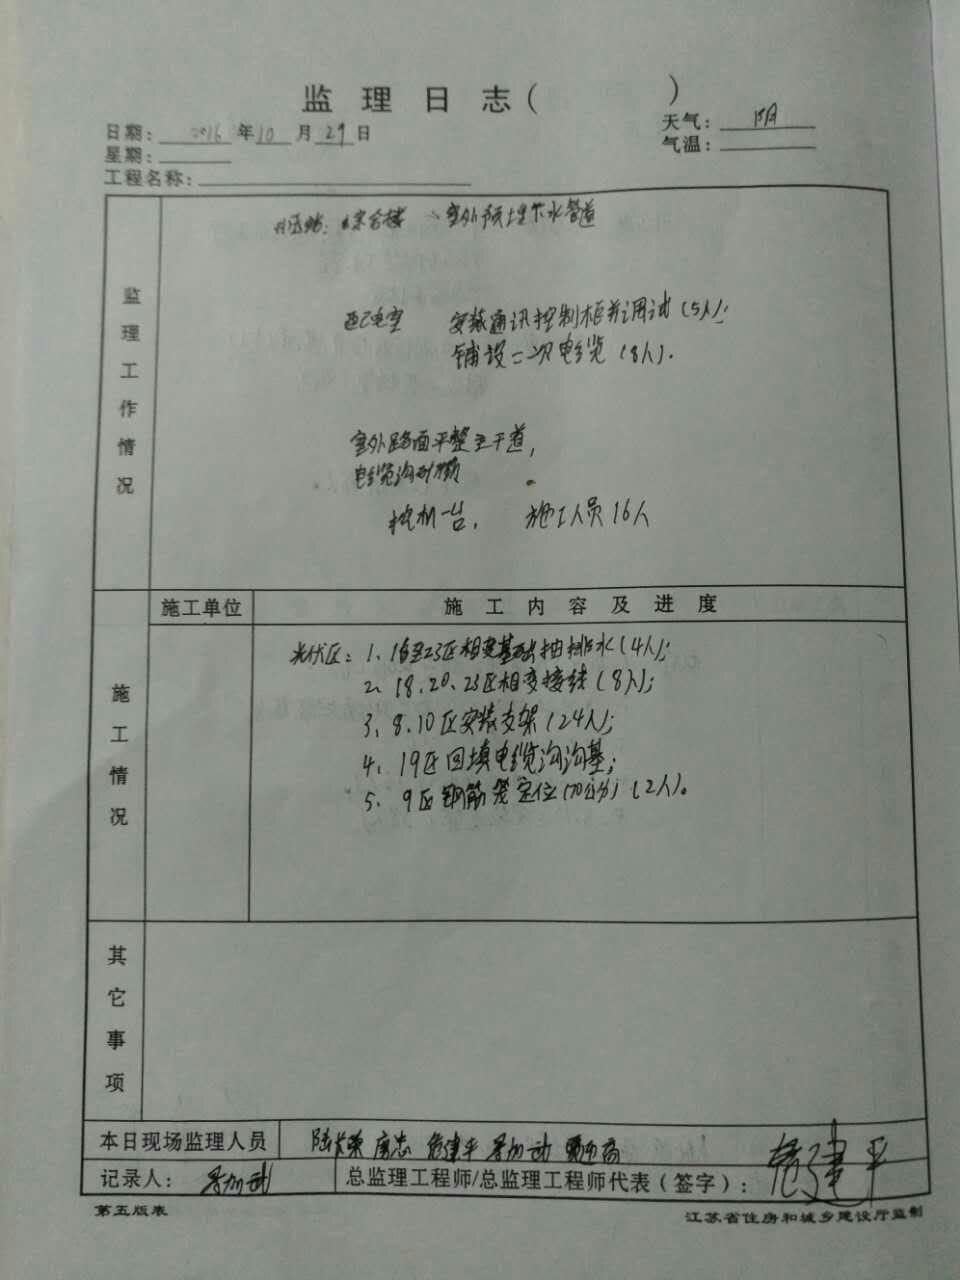 监理日志( )
日期: 2016 年 10 月 29 日
天气: 阴
星期:
气温:
工程名称:
监理工作情况
升压站: 综合楼 室外预埋下水管道
配电室 安装通讯控制柜并调试(5人);
铺设二次电缆(8人).
室外路面平整主干道,
电缆沟
挖机一台, 施工人员16人
施工单位 施工内容及进度
施工情况
光伏区: 1、16至23区相变基础抽排水(4人);
2、18、20、23区相变接线(8人);
3、8、10区安装支架(24人);
4、19区回填电缆沟沟基;
5、9区钢筋笼定位(70)(2人)。
其它事项
本日现场监理人员 唐忠 建平
记录人:
总监理工程师/总监理工程师代表(签字): 建平
第五版表
江苏省住房和城乡建设厅监制